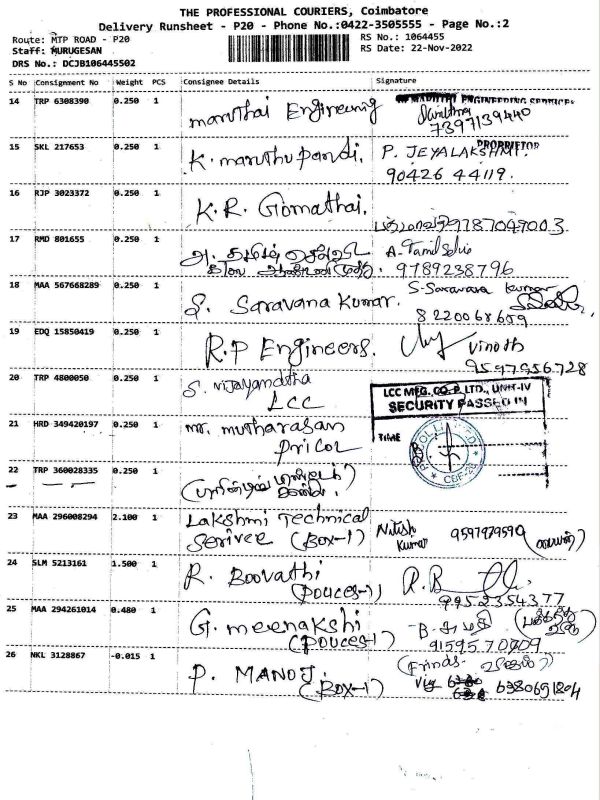 THE PROFESSIONAL COURIERS, Coimbatore
Delivery Runsheet - P20 - Phone No.:0422-3505555 - Page No.:2
Route: MTP ROAD - P20
RS No.: 1064455
Staff: MURUGESAN
RS Date: 22-Nov-2022
DRS No.: DCJB106445502
S No Consignment No Weight PCS Consignee Details Signature
14 TRP 6308390 0.250 1 maruthai Engineering
7397139440
PROPRIETOR
15 SKL 217653 0.250 1 K. maruthupandi, P. JEYALAKSHMI.
90426 44119.
16 RJP 3023372 0.250 1 K. R. Gomathai, 9787049003
17 RMD 801655 0.250 1 அ. தமிழ் செல்வி A-Tamilselvi
9789238796
18 MAA 567668289 0.250 1 S. Saravana Kumar. S-Saravana Kumar
8220068609
19 EDQ 15850419 0.250 1 R.P Engineers. vinoth
9597956728
20 TRP 4800050 0.250 1 S. vijayanditha
LCC
LCC MFG. CO. P. LTD., UNIT-IV
SECURITY PASSED IN
21 HRD 349420197 0.250 1 mr. mutharasan
pricol
TIME
22 TRP 360028335 0.250 1
23 MAA 296008294 2.100 1 Lakshmi Technical
Serivce (Box-1)
Nitish Kumar 9597979590
24 SLM 5213161 1.500 1 R. Boovathi
(Pouces-1)
9952354377
25 MAA 294261014 0.480 1 G. meenakshi
(Pouces-1)
B. சுமதி
9159570709
26 NKL 3128867 -0.015 1 P. MANOJ.
(BOX-1)
6380691804